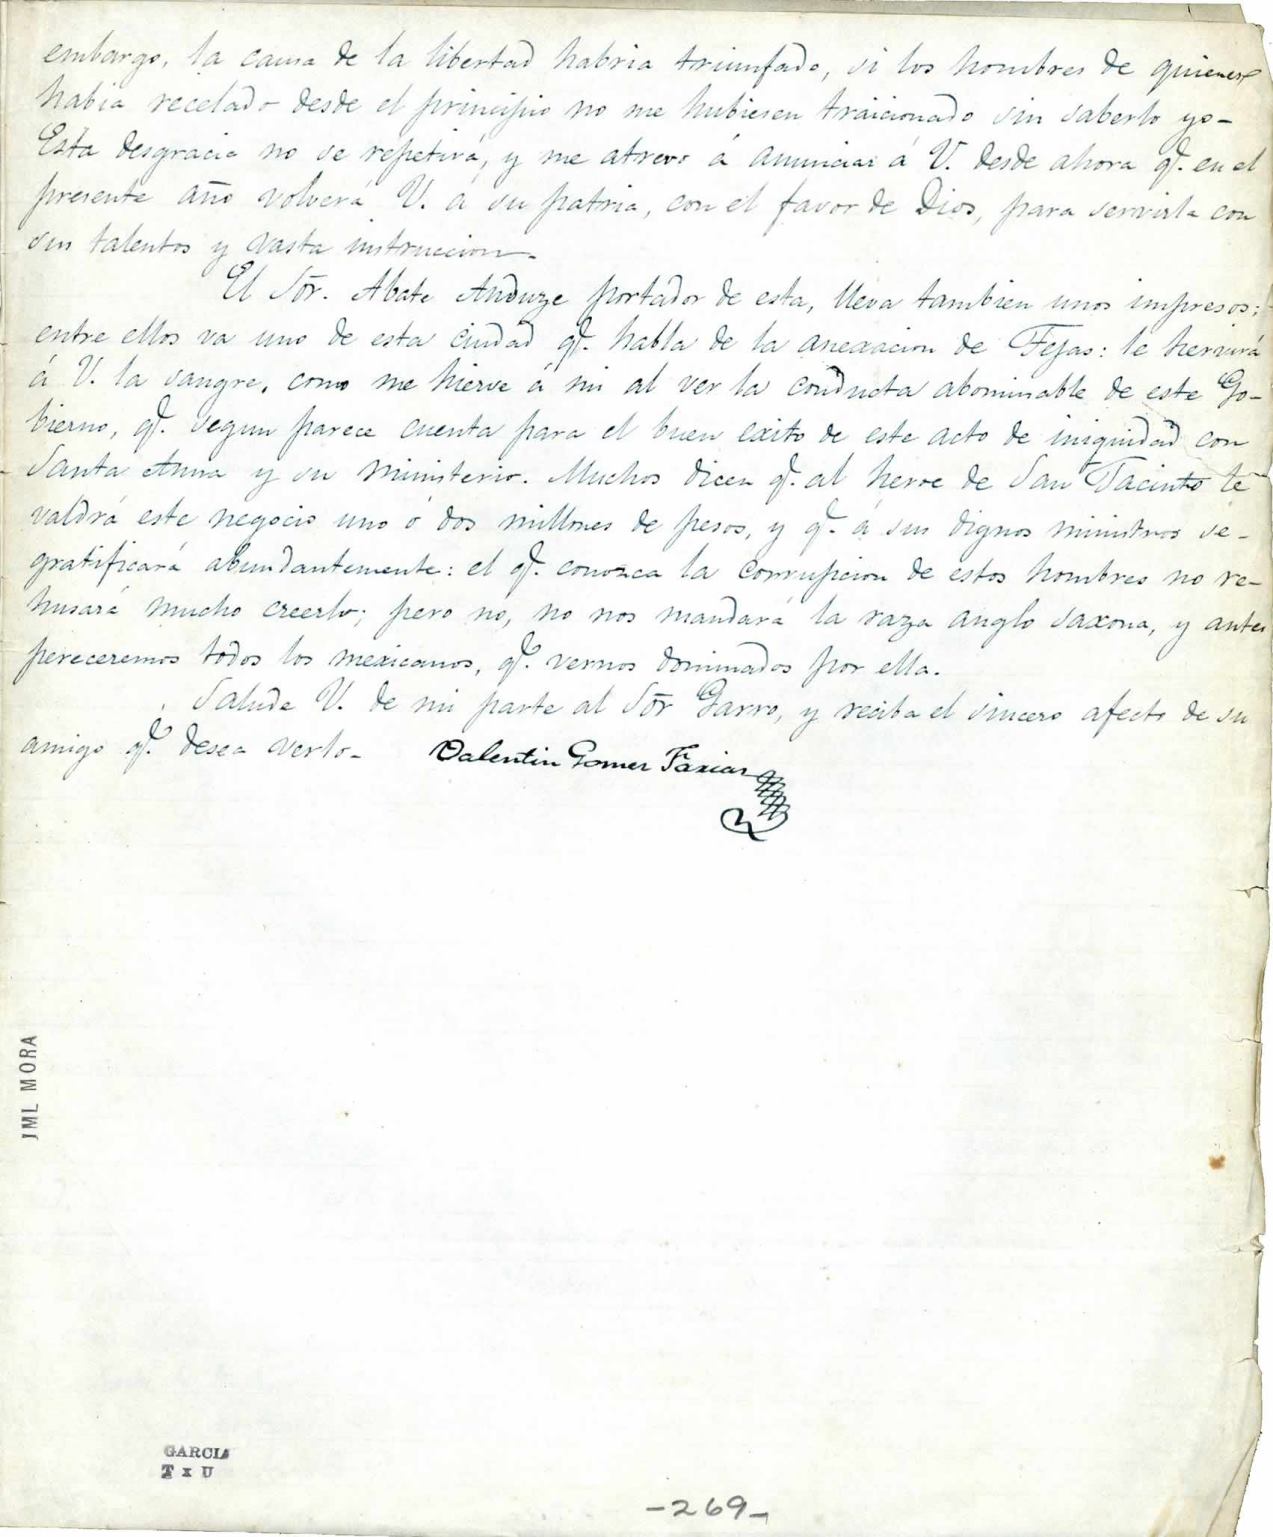 embargo, la causa de la libertad habria triumfado, si los hombres de quienes
habia recelado desde el principio no me hubiesen traicionado sin saberlo yo-
Esta desgracia no se repetirá, y me atrevo á anunciar á V. desde ahora q̃. en el
presente año volverá V. á su patria, con el favor de Dios, para servirla con
sus talentos y vasta instruccion.
El Sõr. Abate Anduze portador de esta, lleva tambien unos impresos;
entre ellos va uno de esta ciudad q̃. habla de la anexacion de Tejas: le hervirá
á V. la sangre, como me hierve á mi al ver la conducta abominable de este Go-
bierno, q̃. segun parece cuenta para el buen exito de este acto de iniquidad con
Santa Anna y su Ministerio. Muchos dicen q̃. al heroe de San Jacinto le
valdrá este negocio uno ó dos millones de pesos, y q̃. á sus dignos ministros se-
gratificará abundantemente: el q̃. conozca la corrupcion de estos hombres no re-
husará mucho creerlo; pero no, no nos mandará la raza anglo saxona, y antes
pereceremos todos los mexicanos, q̃. vernos dominados por ella.
Salude V. de mi parte al Sõr Garro, y reciba el sincero afecto de su
amigo q̃. desea verlo- Valentin Gomez Farias
JML MORA
GARCIA
T x U
-269-